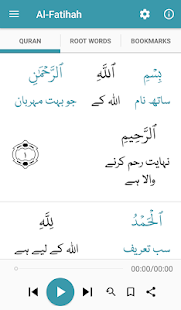 Al-Fatihah
QURAN ROOT WORDS BOOKMARKS
بِسْمِ اللَّهِ الرَّحْمَٰنِ
ساتھ نام اللہ کے جو بہت مہربان
الرَّحِيمِ
نہایت رحم کرنے
والا ہے
١
الْحَمْدُ لِلَّهِ
سب تعریف اللہ کے لیے ہے
00:00/00:00